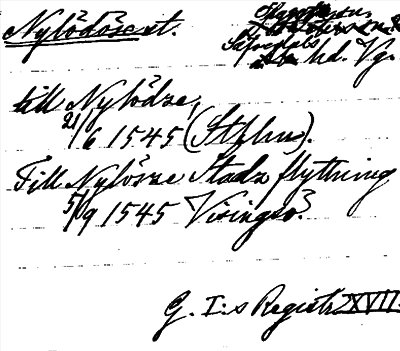 Nylödöse st.
Sävedals
hd. Vg.
till Nylödze,
21/6 1545 (Sthlm).
Till Nylösze Stadz flyttning
5/9 1545 Visingsö.
G. I:s Registr. XVII.